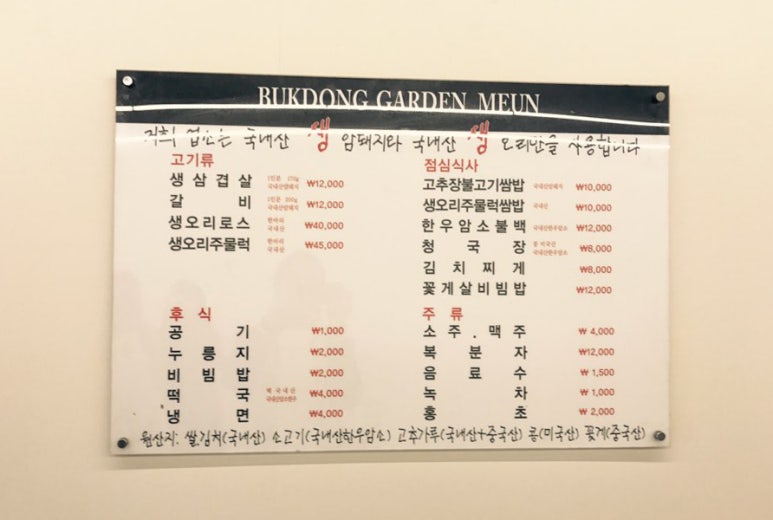 BUKDONG GARDEN MEUN
저희 업소는 국내산 생 암돼지와 국내산 생 오리만을 사용합니다
고기류
생삼겹살 1인분 170g 국내산암돼지 ₩12,000
갈비 1인분 국내산암돼지 ₩12,000
생오리로스 한마리 국내산 ₩40,000
생오리주물럭 한마리 국내산 ₩45,000
점심식사
고추장불고기쌈밥 국내산암돼지 ₩10,000
생오리주물럭쌈밥 국내산 ₩10,000
한우암소불백 국내산한우암소 ₩12,000
청국장 콩 미국산 국내산한우암소 ₩8,000
김치찌게 ₩8,000
꽃게살비빔밥 ₩12,000
후식
공기 ₩1,000
누룽지 ₩2,000
비빔밥 ₩2,000
떡국 떡 국내산 국내산암소한우 ₩4,000
냉면 ₩4,000
주류
소주.맥주 ₩ 4,000
복분자 ₩12,000
음료수 ₩ 1,500
녹차 ₩ 1,000
홍초 ₩ 2,000
원산지: 쌀,김치(국내산) 소고기(국내산한우암소) 고추가루(국내산+중국산) 콩(미국산) 꽃게(중국산)